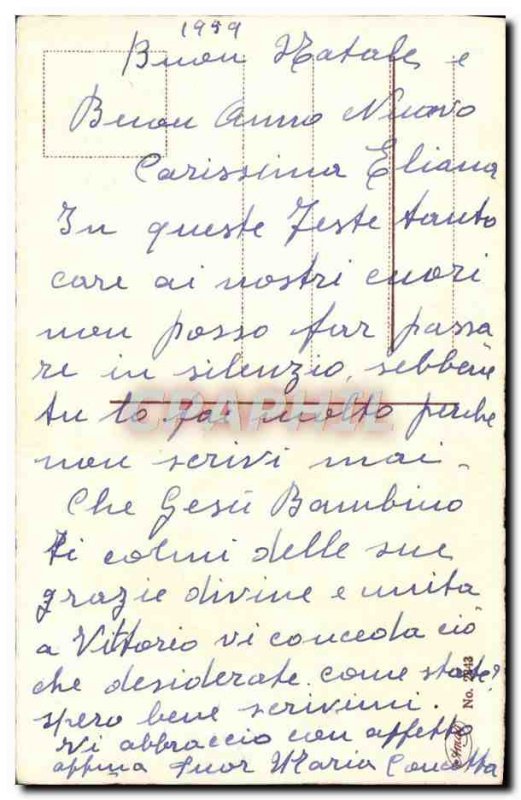 1959
Buon Natale e
Buon Anno Nuovo
Carissima Eliana
In queste Feste tanto
care ai nostri cuori
non posso far passa
re in silenzio, sebbene
tu lo fai molto perché
non scrivi mai.
Che Gesù Bambino
ti colmi delle sue
grazie divine e unita
a Vittorio vi conceda ciò
che desiderate. come state?
spero bene scrivimi.
Vi abbraccio con affetto
affma Suor Maria Concetta
CPAPHIL
No. 2243